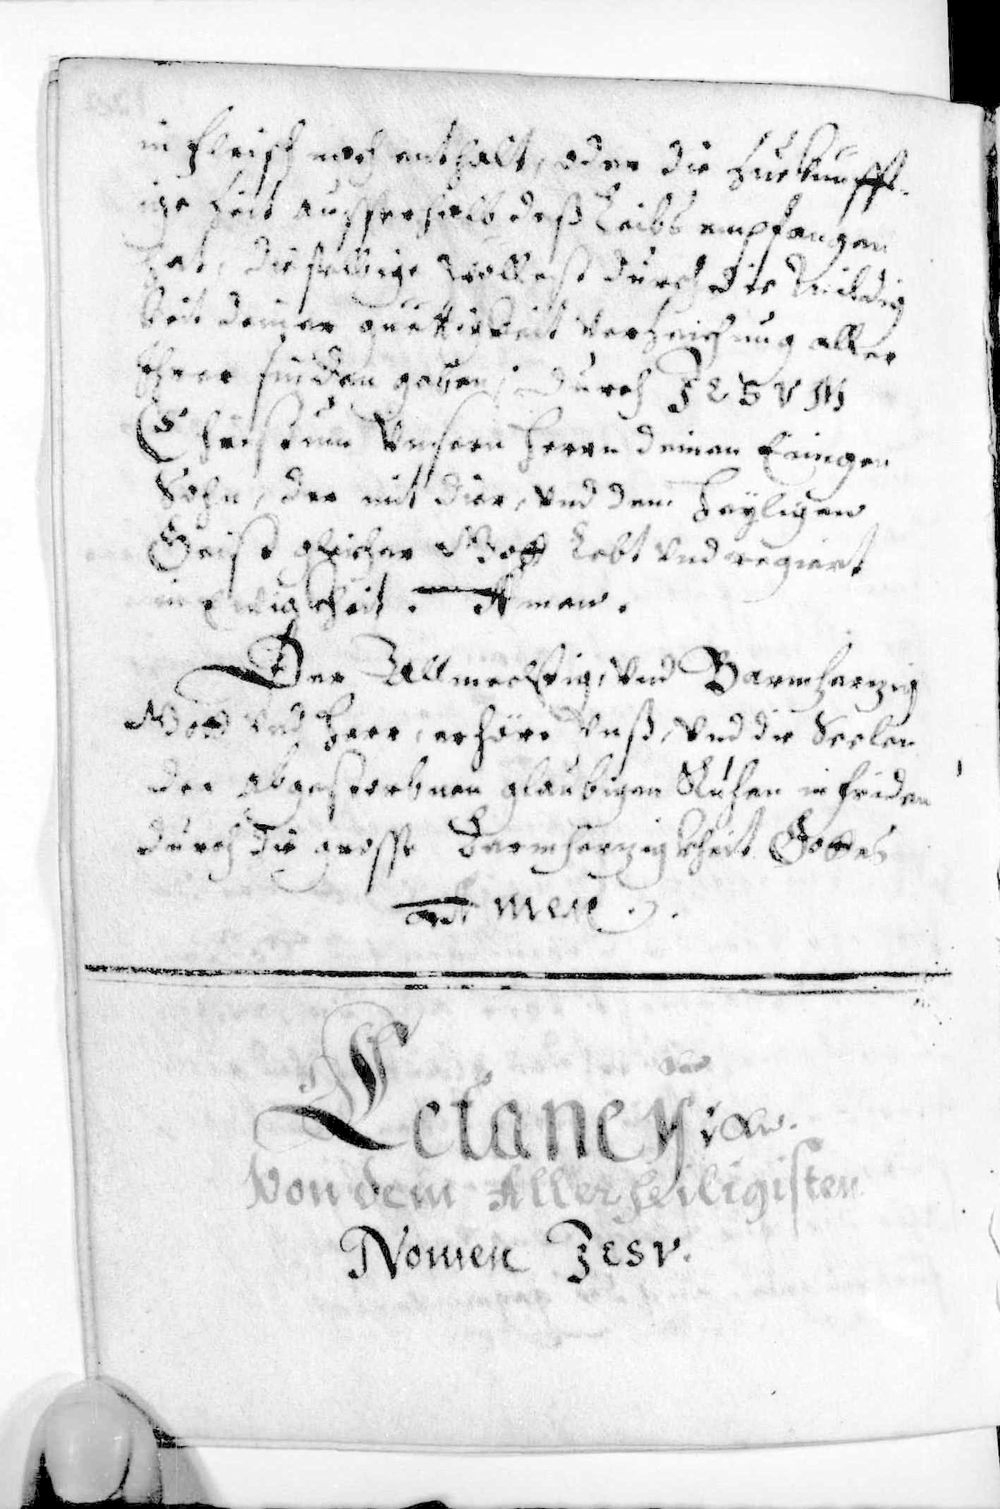 in fleisch noch enthalt, oder die zuekunfft-
ige Zeit ausserhalb deß Leibs empfangen
hat, dieselbige wöllest durch die mildig
keit deiner güettikeit verzeichung aller
Ihrer sünden geben, durch JESVM
Christum Vnsern Herrn deinen Einigen
Sohn, der mit dier, vnd dem Heyligen
Geist gleicher Gott Lebt vnd regiert
in Ewigkheit. Amen.
Der Allmechtig, vnd Barmherzig
Gott vnd Herr, erhöre vnß, vnd die Seelen
der abgestorbnen glaubigen Ruhen in friden
durch die grosse Barmherzigkheit Gottes
Amen.
Letaney
Von dem Allerheiligisten
Nomen Jesv.